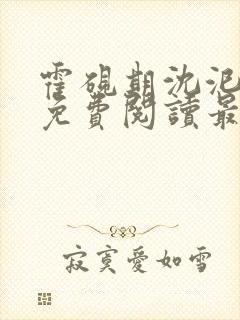 霍硯期沈泥
免費閱讀最
寂寞愛如雪